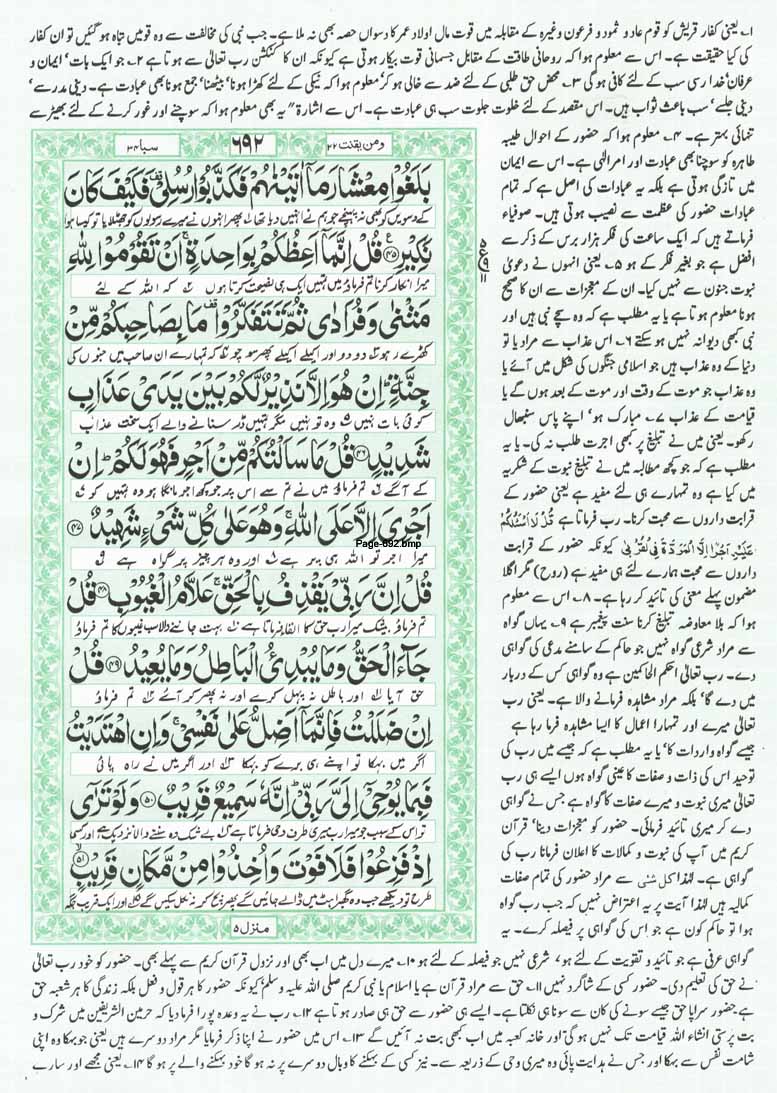 ۱؎ یعنی کفار قریش کو قوم عاد و ثمود و فرعون وغیرہ کے مقابلہ میں قوت مال اولاد عمر کا دسواں حصہ بھی نہ ملا ہے۔ جب نبی کی مخالفت سے وہ قومیں تباہ ہو گئیں تو ان کفار
کی کیا حقیقت ہے۔ اس سے معلوم ہوا کہ روحانی طاقت کے مقابل جسمانی قوت بیکار ہوتی ہے کیونکہ ان کا کنکشن رب تعالیٰ سے ہوتا ہے ۲؎ جو ایک بات‘ ایمان و
عرفان‘ خدا رسی سب کے لئے کافی ہو گی ۳؎ محض حق طلبی کے لئے ضد سے خالی ہو کر‘ معلوم ہوا کہ نیکی کے لئے کھڑا ہونا‘ بیٹھنا‘ جمع ہونا بھی عبادت ہے۔ دینی مدرسے‘
دینی جلسے‘ سب باعث ثواب ہیں۔ اس مقصد کے لئے خلوت جلوت سب ہی عبادت ہے۔ اس سے اشارۃً یہ بھی معلوم ہوا کہ سوچنے اور غور کرنے کے لئے بھیڑ سے
تنہائی بہتر ہے۔ ۴؎ معلوم ہوا کہ حضور کے احوال طیبہ
طاہرہ کو سوچنا بھی عبادت اور امر الٰہی ہے۔ اس سے ایمان
میں تازگی ہوتی ہے بلکہ یہ عبادات کی اصل ہے کہ تمام
عبادات حضور کی عظمت سے نصیب ہوتی ہیں۔ صوفیاء
فرماتے ہیں کہ ایک ساعت کی فکر ہزار برس کے ذکر سے
افضل ہے جو بغیر فکر کے ہو ۵؎ یعنی انہوں نے دعویٰ
نبوت جنون سے نہیں کیا۔ ان کے معجزات سے ان کا صحیح
ہونا معلوم ہوتا ہے یا یہ مطلب ہے کہ وہ سچے نبی ہیں اور
نبی کبھی دیوانہ نہیں ہو سکتے ۶؎ اس عذاب سے مراد یا تو
دنیا کے وہ عذاب ہیں جو اسلامی جنگوں کی شکل میں آئے یا
وہ عذاب جو موت کے وقت اور موت کے بعد ہوں گے یا
قیامت کے عذاب ۷؎ مبارک ہو‘ اپنے پاس سنبھال
رکھو۔ یعنی میں نے تبلیغ پر کبھی اجرت طلب نہ کی۔ یا یہ
مطلب ہے کہ جو کچھ مطالبہ میں نے تبلیغ نبوت کے شکریہ
میں کیا ہے وہ تمہارے ہی لئے مفید ہے یعنی حضور کے
قرابت داروں سے محبت کرنا۔ رب فرماتا ہے قُلْ لَّا اَسْئَلُكُمْ
عَلَيْهِ اَجْرًا اِلَّا الْمَوَدَّةَ فِي الْقُرْبٰى کیونکہ حضور کے قرابت
داروں سے محبت ہمارے لئے ہی مفید ہے (روح) مگر اگلا
مضمون پہلے معنی کی تائید کر رہا ہے۔ ۸؎ اس سے معلوم
ہوا کہ بلا معاوضہ تبلیغ کرنا سنت پیغمبر ہے ۹؎ یہاں گواہ
سے مراد شرعی گواہ نہیں جو حاکم کے سامنے مدعی کی گواہی
دے۔ رب تعالیٰ احکم الحاکمین ہے وہ گواہی کس کے دربار
میں دے گا‘ بلکہ مراد مشاہدہ فرمانے والا ہے۔ یعنی رب
تعالیٰ میرے اور تمہارا اعمال کا ایسا مشاہدہ فرما رہا ہے
جیسے گواہ واردات کا‘ یا یہ مطلب ہے کہ جیسے میں رب کی
توحید اس کی ذات و صفات کا عینی گواہ ہوں ایسے ہی رب
تعالیٰ میری نبوت و میرے صفات کا گواہ ہے جس نے گواہی
دے کر میری تائید فرمائی۔ حضور کو معجزات دینا‘ قرآن
کریم میں آپ کی نبوت و کمالات کا اعلان فرمانا رب کی
گواہی ہے۔ لہٰذا کل شئی سے مراد حضور کی تمام صفات
کمالیہ ہیں لہٰذا آیت پر یہ اعتراض نہیں کہ جب رب گواہ
ہوا تو حاکم کون ہے جو اس کی گواہی پر فیصلہ کرے۔ یہ
ومن یقنت ۲۲
۶۹۲
سبا ۳۴
بَلَغُوْا مِعْشَارَ مَاۤ اٰتَيْنٰهُمْ فَكَذَّبُوْا رُسُلِيْ ۫ فَكَيْفَ كَانَ
کے دسویں کو بھی نہ پہنچے جو ہم نے انہیں دیا تھا پھر انہوں نے میرے رسولوں کو جھٹلایا تو کیسا ہوا
نَكِيْرِ ﴿۴۵﴾ قُلْ اِنَّمَاۤ اَعِظُكُمْ بِوَاحِدَةٍ ۚ اَنْ تَقُوْمُوْا لِلّٰهِ
میرا انکار کرنا تم فرماؤ میں تمہیں ایک ہی نصیحت کرتا ہوں کہ اللہ کے لئے
مَثْنٰى وَفُرَادٰى ثُمَّ تَتَفَكَّرُوْا ۫ مَا بِصَاحِبِكُمْ مِّنْ
کھڑے رہو دو دو اور اکیلے اکیلے پھر سوچو کہ تمہارے ان صاحب میں جنوں کی
جِنَّةٍ ؕ اِنْ هُوَ اِلَّا نَذِيْرٌ لَّكُمْ بَيْنَ يَدَيْ عَذَابٍ
کوئی بات نہیں وہ تو نہیں مگر تمہیں ڈر سنانے والے ایک سخت عذاب
شَدِيْدٍ ﴿۴۶﴾ قُلْ مَا سَاَلْتُكُمْ مِّنْ اَجْرٍ فَهُوَ لَكُمْ ؕ اِنْ
کے آگے تم فرماؤ میں نے تم سے اس پر جو کچھ اجر مانگا ہو وہ تمہیں کو
اَجْرِيَ اِلَّا عَلَى اللّٰهِ ۚ وَهُوَ عَلٰى كُلِّ شَيْءٍ شَهِيْدٌ ﴿۴۷﴾
Page-692.bmp
میرا اجر تو اللہ ہی پر ہے اور وہ ہر چیز پر گواہ ہے
قُلْ اِنَّ رَبِّيْ يَقْذِفُ بِالْحَقِّ ۚ عَلَّامُ الْغُيُوْبِ ﴿۴۸﴾ قُلْ
تم فرماؤ بیشک میرا رب حق کا القا فرماتا ہے بہت جاننے والا سب غیبوں کا تم فرماؤ
جَآءَ الْحَقُّ وَمَا يُبْدِئُ الْبَاطِلُ وَمَا يُعِيْدُ ﴿۴۹﴾ قُلْ
حق آیا اور باطل نہ پہل کرے اور نہ پھر کر آئے تم فرماؤ
اِنْ ضَلَلْتُ فَاِنَّمَاۤ اَضِلُّ عَلٰى نَفْسِيْ ۚ وَاِنِ اهْتَدَيْتُ
اگر میں بہکا تو اپنے ہی برے کو بہکا اور اگر میں نے راہ پائی
فَبِمَا يُوْحِيْۤ اِلَيَّ رَبِّيْ ؕ اِنَّهٗ سَمِيْعٌ قَرِيْبٌ ﴿۵۰﴾ وَلَوْ تَرٰۤى
تو اس کے سبب جو میرا رب میری طرف وحی فرماتا ہے بے شک وہ سننے والا نزدیک ہے اور کسی
اِذْ فَزِعُوْا فَلَا فَوْتَ وَاُخِذُوْا مِنْ مَّكَانٍ قَرِيْبٍ ﴿۵۱﴾
طرح تو دیکھے جب وہ گھبراہٹ میں ڈالے جائیں گے پھر بچ کر نہ نکل سکیں گے اور ایک قریب جگہ
منزل ۵
گواہی عرفی ہے جو تائید و تقویت کے لئے ہو‘ شرعی نہیں جو فیصلہ کے لئے ہو ۱۰؎ میرے دل میں اب بھی اور نزول قرآن کریم سے پہلے بھی۔ حضور کو خود رب تعالیٰ
نے حق کی تعلیم دی۔ حضور کسی کے شاگرد نہیں ۱۱؎ حق سے مراد قرآن ہے یا اسلام یا نبی کریم صلی اللہ علیہ و سلم‘ کیونکہ حضور کا ہر قول و فعل بلکہ زندگی کا ہر شعبہ حق
ہے حضور سراپا حق جیسے سونے کی کان سے سونا ہی نکلتا ہے۔ ایسے ہی حضور سے حق ہی صادر ہوتا ہے ۱۲؎ رب نے یہ وعدہ پورا فرما دیا کہ حرمین الشریفین میں شرک و
بت پرستی انشاء اللہ قیامت تک نہیں ہو گی اور خانہ کعبہ میں اب کبھی بت نہ آئیں گے ۱۳؎ اس میں حضور نے اپنا ذکر فرمایا مگر مراد دوسرے ہیں یعنی جو بہکا وہ اپنی
شامت نفس سے بہکا اور جس نے ہدایت پائی وہ میری وحی کے ذریعہ سے۔ نیز کسی کے بہکنے کا وبال دوسرے پر نہ ہو گا خود بہکنے والے پر ہو گا ۱۴؎ یعنی مجھے اور سارے